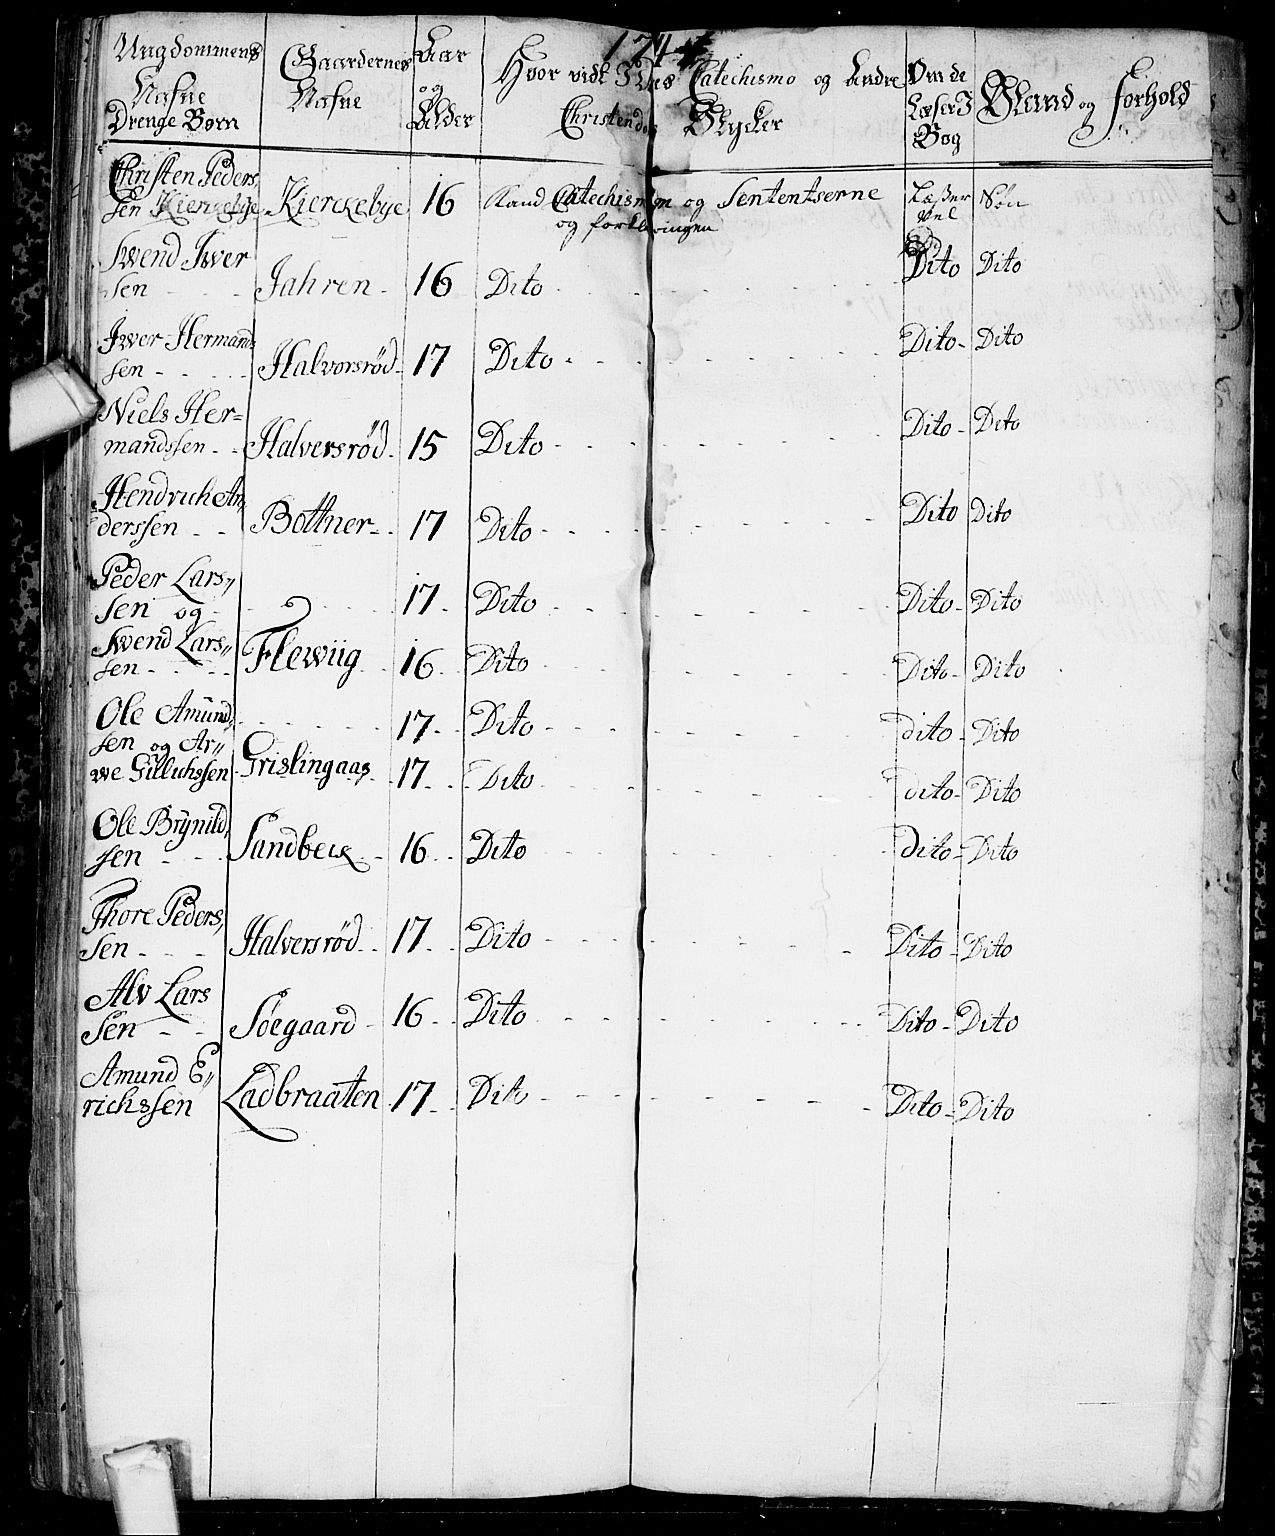 174
Ungdommens Nafne Drenge Børn
Gaardernes Nafne
Aar og Alder
Hvor vidt I Des Catechismo og Andre
Christendoms Stycker
Om de Læser I Bog
Stand og forhold
Christen Peders,
sen Kierckebye Kierckebye 16 Kand Catechismum og Sententserne Læßer Søn
og forklaringen vel
Swend Iwer
sen - - Jahren - 16 Dito Dito Dito
Iwer Hermand
sen - - Halvorsrød - 17 Dito Dito - Dito
Niels Her=
mandssen - - Halversrød - 15 Dito Dito - Dito
Hendrich An,
derssen - - Bottner - - 17 Dito Dito Dito
Peder Lars,,
sen og - 17 - Dito Dito - Dito
Swend Lars,,
sen - - Flewiig 16 - Dito Dito - Dito
Ole Amund,
sen og Ar,, 17 - Dito dito - Dito
we Gulichssen Grislingaas 17 - Dito dito - Dito
Ole Brynild,
sen - - Sandbeck - 16 - Dito dito - Dito
Thore Peders,
sen - - Halversrød - 17 - Dito Dito - Dito
Alv Lars
sen - - Søegaard - 16 - Dito Dito - Dito
Amund E,,
richssen Ladbraaten 17 - Dito Dito - Dito